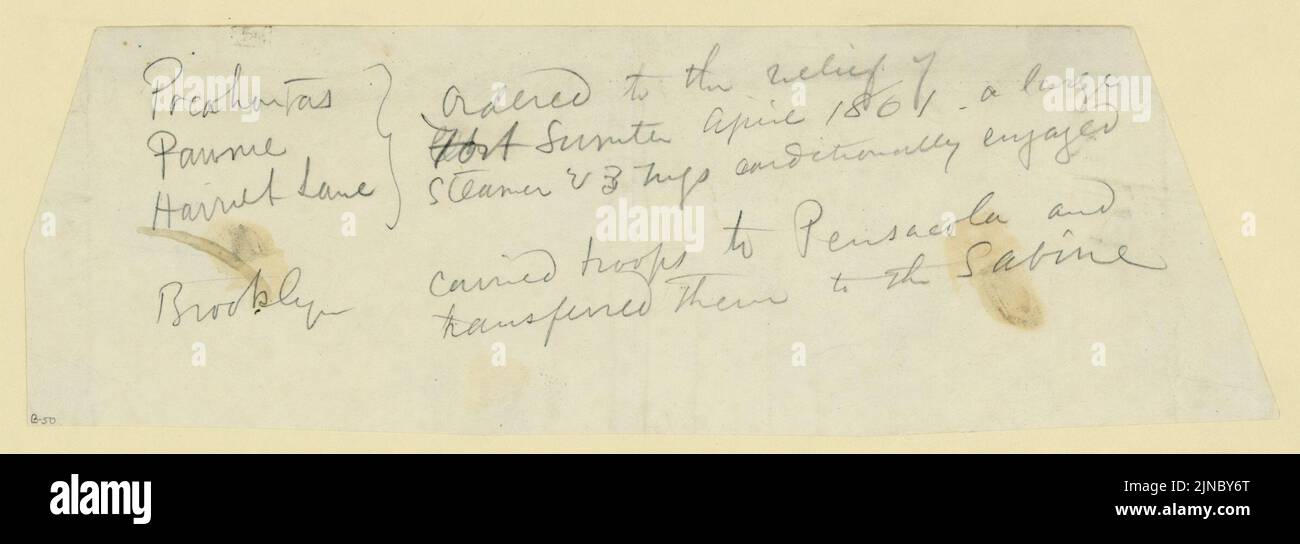 Pocahontas
Pawnee
Harriet Lane
ordered to the relief of
Fort Sumter April 1861 - a large
steamer & 3 tugs conditionally engaged
Brooklyn
carried troops to Pensacola and
transferred them to the Sabine
B-50
a
a
a
a
a
a
a
a
alamy
Image ID: 2JNBY6T
www.alamy.com